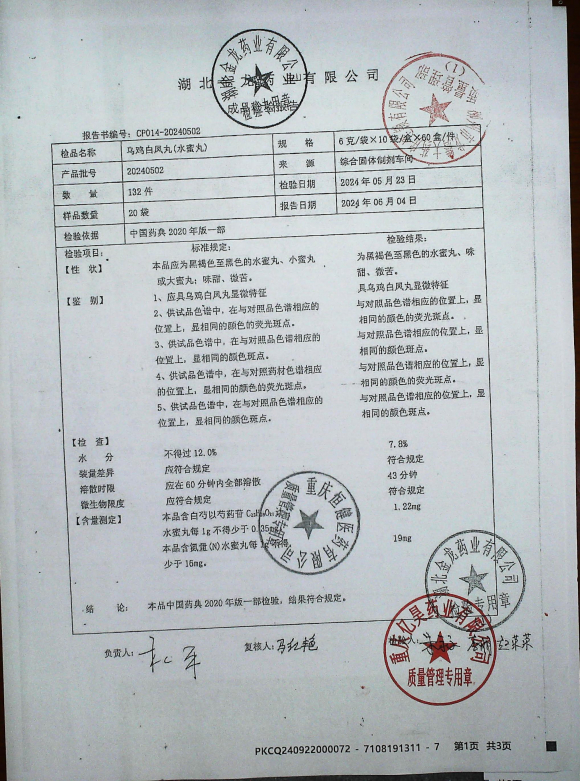 湖北金龙药业有限公司
成品检验报告
报告书编号: CP014-20240502
检品名称 乌鸡白凤丸(水蜜丸) 规 格 6克/袋×10袋/盒×60盒/件
产品批号 20240502 来 源 综合固体制剂车间
数 量 132件 检验日期 2024年05月23日
样品数量 20袋 报告日期 2024年06月04日
检验依据 中国药典2020年版一部
检验项目: 标准规定: 检验结果:
【性 状】 本品应为黑褐色至黑色的水蜜丸、小蜜 为黑褐色至黑色的水蜜丸、味
丸或大蜜丸;味甜、微苦。 甜、微苦。
【鉴 别】 1、应具乌鸡白凤丸显微特征 具乌鸡白凤丸显微特征
2、供试品色谱中,在与对照品色谱相应的 与对照品色谱相应的位置上,显
位置上,显相同的颜色的荧光斑点。 相同的颜色的荧光斑点。
3、供试品色谱中,在与对照品色谱相应的 与对照品色谱相应的位置上,显
位置上,显相同的颜色斑点。 相同的颜色斑点。
4、供试品色谱中,在与对照药材色谱相应 与对照品色谱相应的位置上,显
的位置上,显相同的颜色的荧光斑点。 相同的颜色的荧光斑点。
5、供试品色谱中,在与对照品色谱相应的 与对照品色谱相应的位置上,显
位置上,显相同的颜色斑点。 相同的颜色斑点。
【检 查】
水 分 不得过12.0% 7.8%
装量差异 应符合规定 符合规定
溶散时限 应在60分钟内全部溶散 43分钟
微生物限度 应符合规定 符合规定
【含量测定】 本品含白芍以芍药苷 1.22mg
水蜜丸每1g不得少于0.35mg
本品含氮量(N)水蜜丸每 19mg
少于15mg。
结 论: 本品中国药典2020年版一部检验,结果符合规定。
负责人: 复核人: 冯红艳
湖北金龙药业有限公司
检验专用章
质量管理部
(1)
重庆恒健医药有限公司
质量管理专用章
湖北金龙药业有限公司
检验专用章
重庆亿昊药业有限公司
质量管理专用章
PKCQ240922000072 - 7108191311 - 7 第1页 共3页